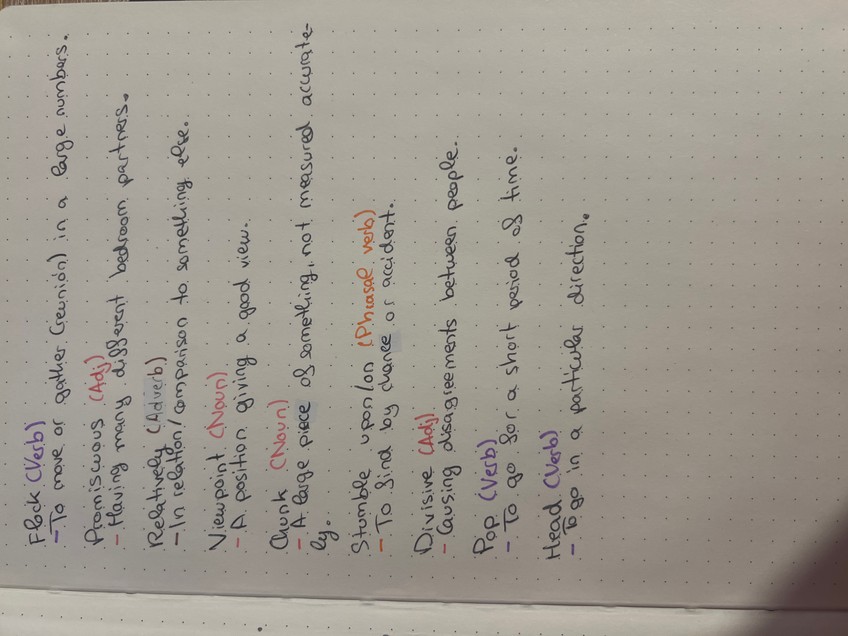 Flock (Verb)
- To move or gather (reunión) in a large numbers.
Promiscuous (Adj)
- Having many different bedroom partners.
Relatively (Adverb)
- In relation/comparison to something else.
Viewpoint (Noun)
- A position giving a good view.
Chunk (Noun)
- A large piece of something, not measured accurate-
ly.
Stumble upon/on (Phrasal verb)
- To find by chance or accident.
Divisive (Adj)
- Causing disagreements between people.
Pop (Verb)
- To go for a short period of time.
Head (Verb)
- To go in a particular direction.